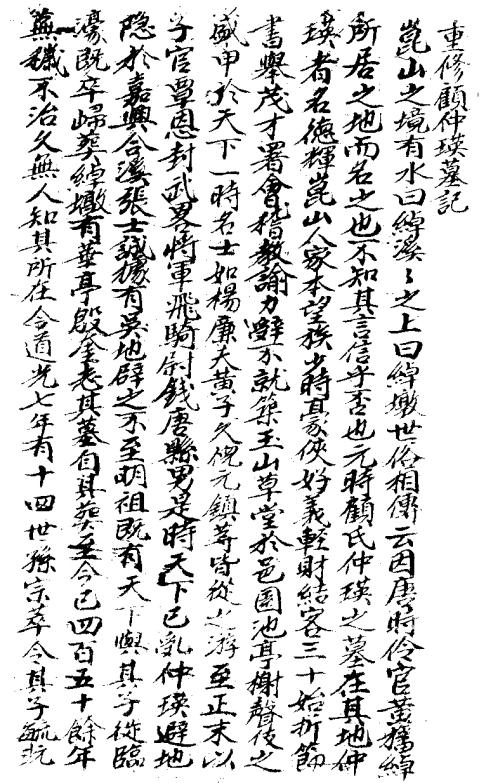 重修顧仲瑛墓記
崑山之境有水曰綽溪〻之上曰綽墩世俗相傳云因唐時伶官黃旛綽
所居之地而名之也不知其言信乎否也元時顧氏仲瑛之墓在其地仲
瑛者名德輝崑山人家本望族少時豪俠好義輕財結客三十始折節
書舉茂才署會稽教諭力辭不就築玉山草堂於邑園池亭榭聲伎之
盛甲於天下一時名士如楊廉夫黃子久倪元鎮等皆從之游至正末以
子官覃恩封武畧將軍飛騎尉錢唐縣男是時天下已亂仲瑛避地
隐於嘉興合溪張士誠據有吳地辟之不至明祖既有天下與其子徙臨
濠既卒歸葬綽墩有華亭殷奎志其墓自其葬至今已四百五十餘年
蕪穢不治久無人知其所在今道光七年有十四世孫宗萃令其子毓